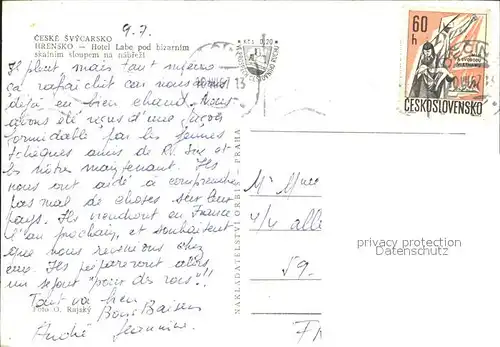 9.7.
ČESKÉ ŠVÝCARSKO
HŘENSKO – Hotel Labe pod bizarním
skalním sloupem na nábřeží
Il pleut mais tant mieux
ça rafraîchit car nous avons
déjà eu bien chaud. Nous
avons été reçus d'une façon
formidable par les jeunes
tchèques amis de
les nôtres maintenant. Ils
nous ont aidé à comprendre
pas mal de choses sur leur
pays. Ils viendront en France
l'an prochain, et souhaitent
que nous revenions chez
eux. Ils prépareront alors
un séjour "pour des rois"!!
Tout va bien
Bons Baisers
André Jeannine
Foto O. Rajský
NAKLADATELSTVÍ ORBIS - PRAHA
KČS 0,20
60
h
ČESKOSLOVENSKO
DĚČÍN
M
4/4 allé
59
F
privacy protection
VEREDELTER DATENSCHUTZ